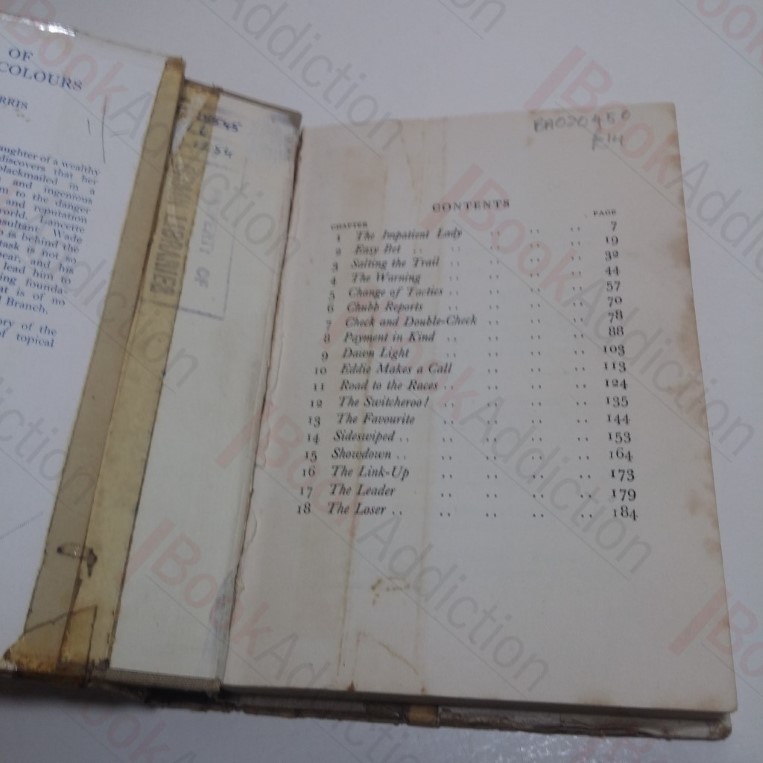 OF
COLOURS
RRIS
aughter of a wealthy
discovers that her
blackmailed in a
and ingenious
m to the danger
and reputation
world. Lancette
nsultant. Wade
o is behind the
task is not so
pear, and his
lead him to
ing founda-
at is of no
l Branch.
ory of the
of topical
BA020950
K14
CONTENTS
CHAPTER PAGE
1 The Impatient Lady .. .. .. 7
2 Easy Bet .. .. .. .. 19
3 Salting the Trail .. .. .. .. 32
4 The Warning .. .. .. .. 44
5 Change of Tactics .. .. .. .. 57
6 Chubb Reports .. .. .. .. 70
7 Check and Double-Check .. .. .. 78
8 Payment in Kind .. .. .. .. 88
9 Dawn Light .. .. .. .. 103
10 Eddie Makes a Call .. .. .. 113
11 Road to the Races .. .. .. .. 124
12 The Switcheroo! .. .. .. .. 135
13 The Favourite .. .. .. .. 144
14 Sideswiped .. .. .. .. .. 153
15 Showdown .. .. .. .. .. 164
16 The Link-Up .. .. .. .. 173
17 The Leader .. .. .. .. 179
18 The Loser .. .. .. .. .. 184
BookAddiction